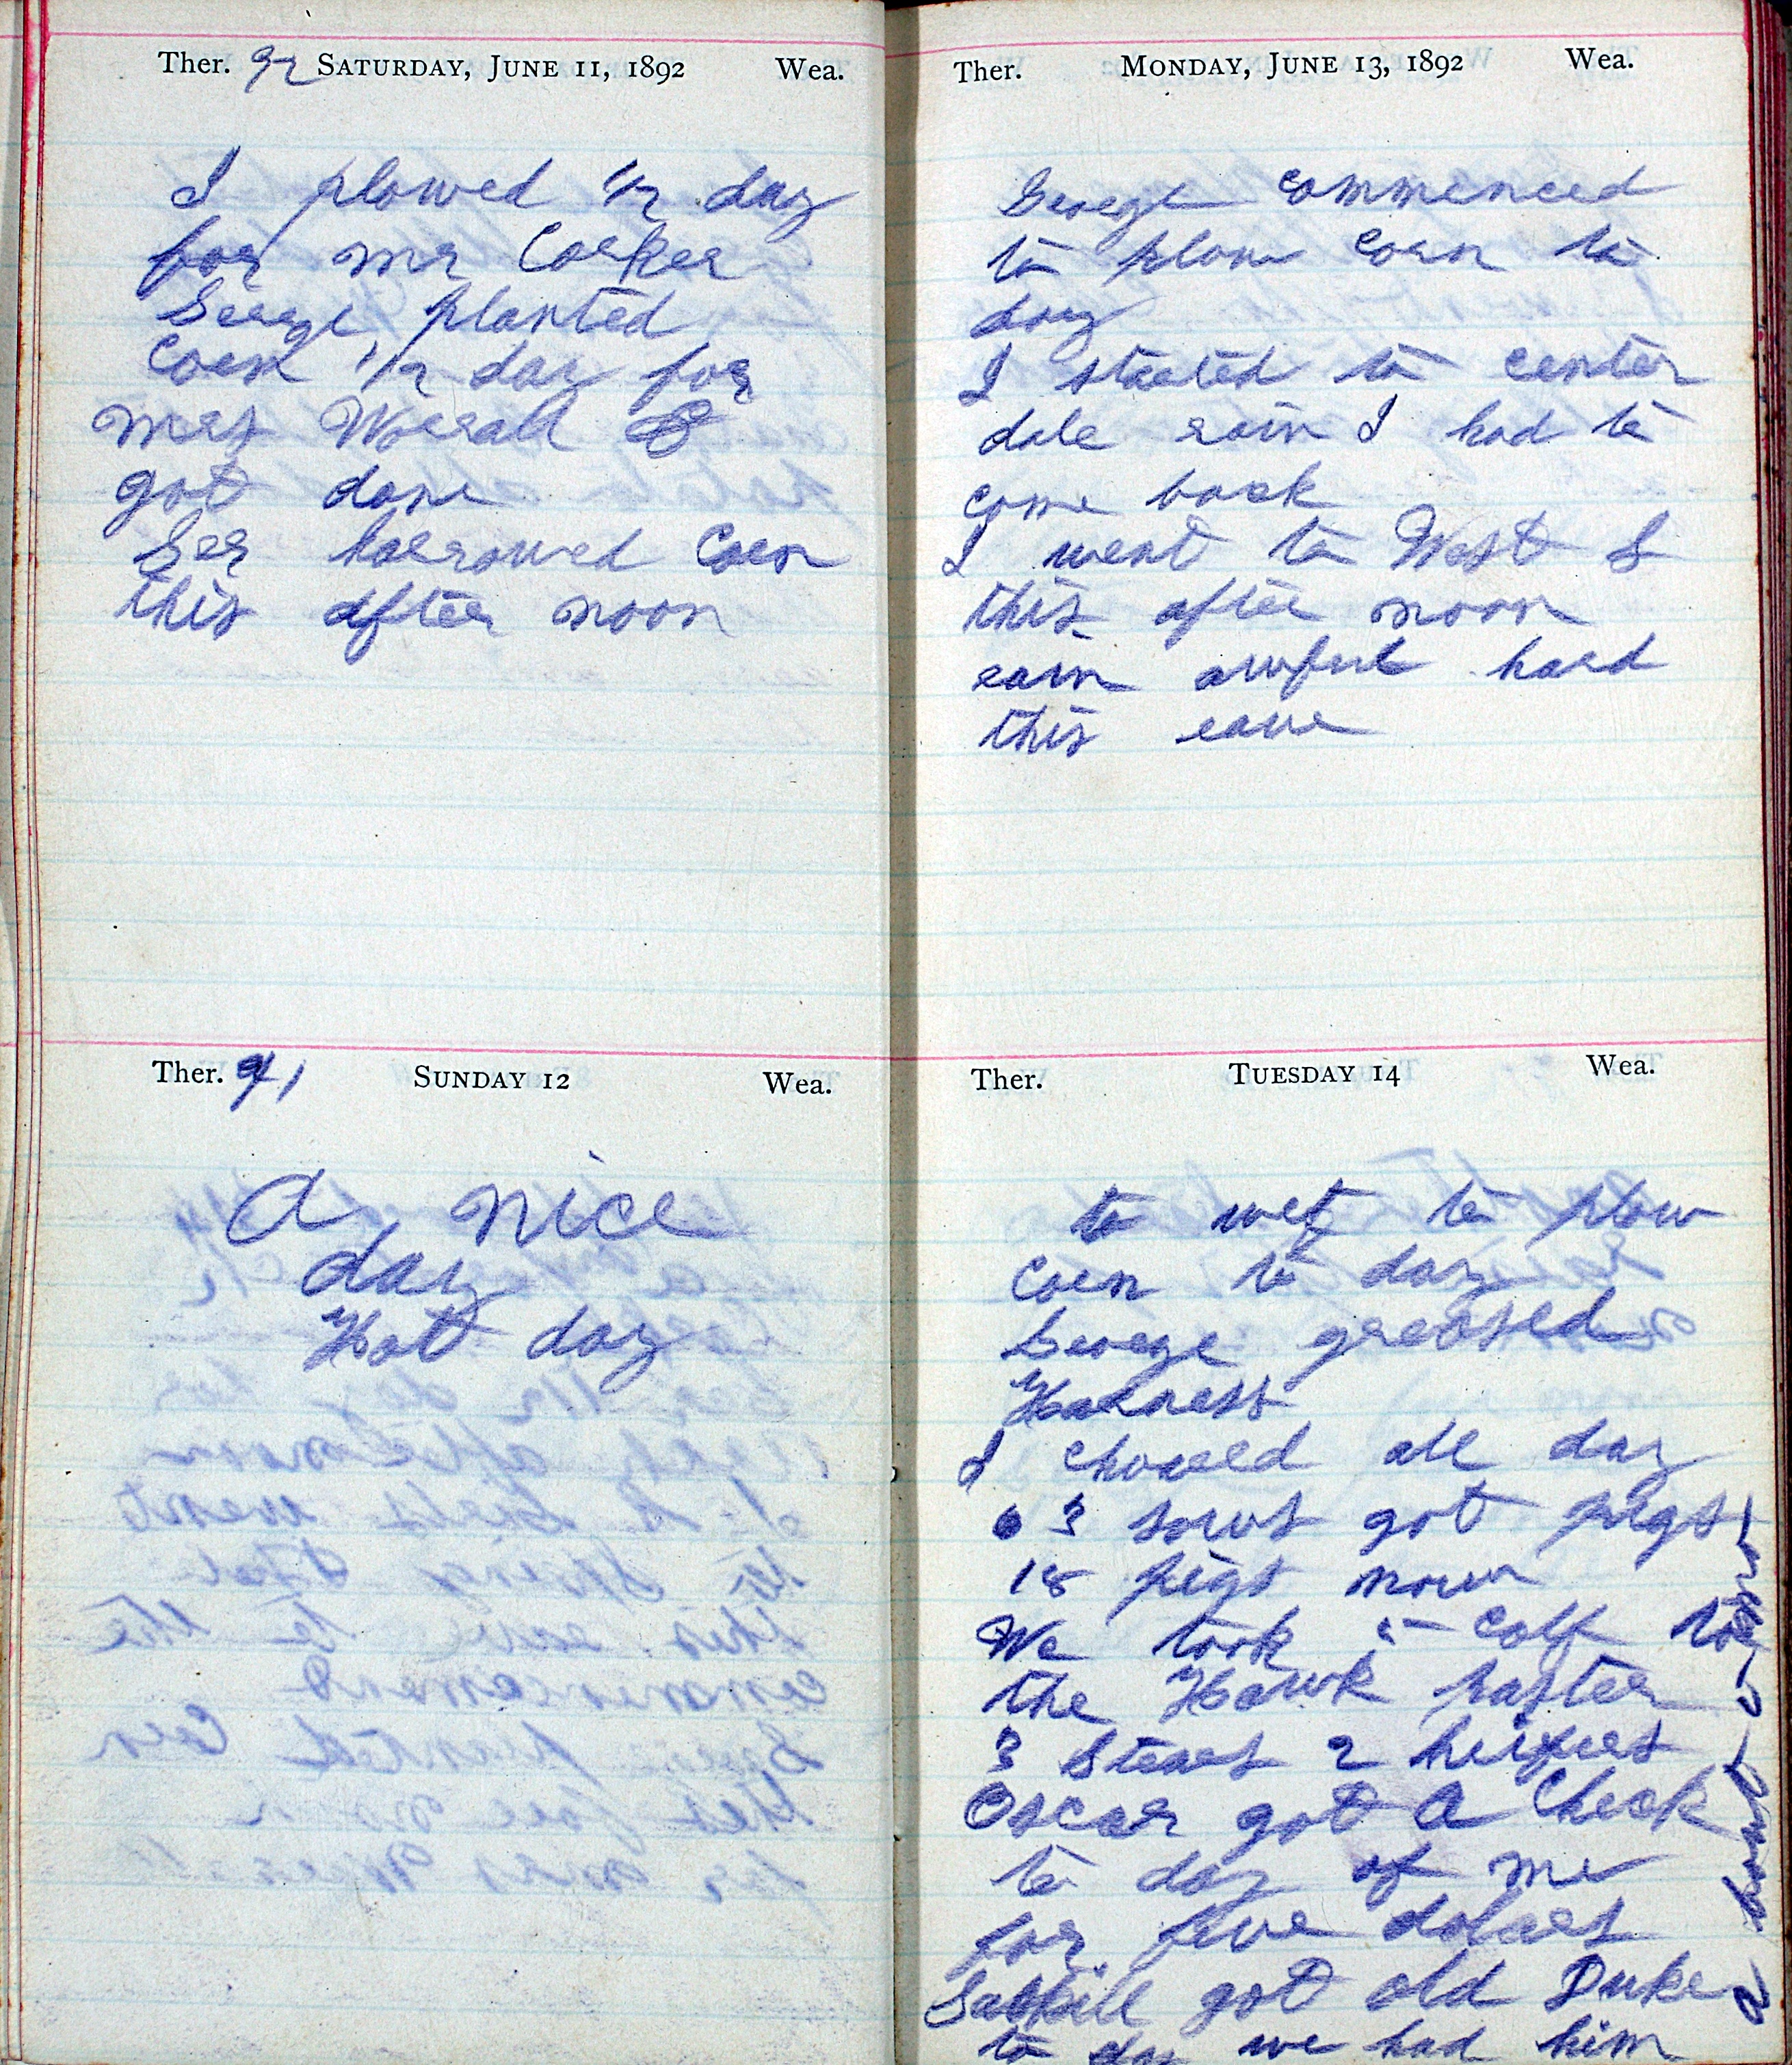 Ther. 92 SATURDAY, JUNE 11, 1892 Wea.
I plowed 1/2 day
for mr Corker
George planted
Corn 1/2 day for
mrs Worrall
got done
Ger harrowed Corn
this after noon
Ther. 91 SUNDAY 12 Wea.
A nice
day
Hot day
Ther. MONDAY, JUNE 13, 1892 Wea.
George commenced
to plow corn to
day
I started to center
dale rain I had to
come back
I went to West L
this after noon
rain awful hard
this eave
Ther. TUESDAY 14 Wea.
to wet to plow
corn to day
George greased
Harness
I chored all day
3 sows got pigs
18 pigs now
We took 5 calf to
the Hawk paster
3 Stears 2 heifers
Oscar got A Check
to day of me
for five dolars
got old Duke
to day we had him